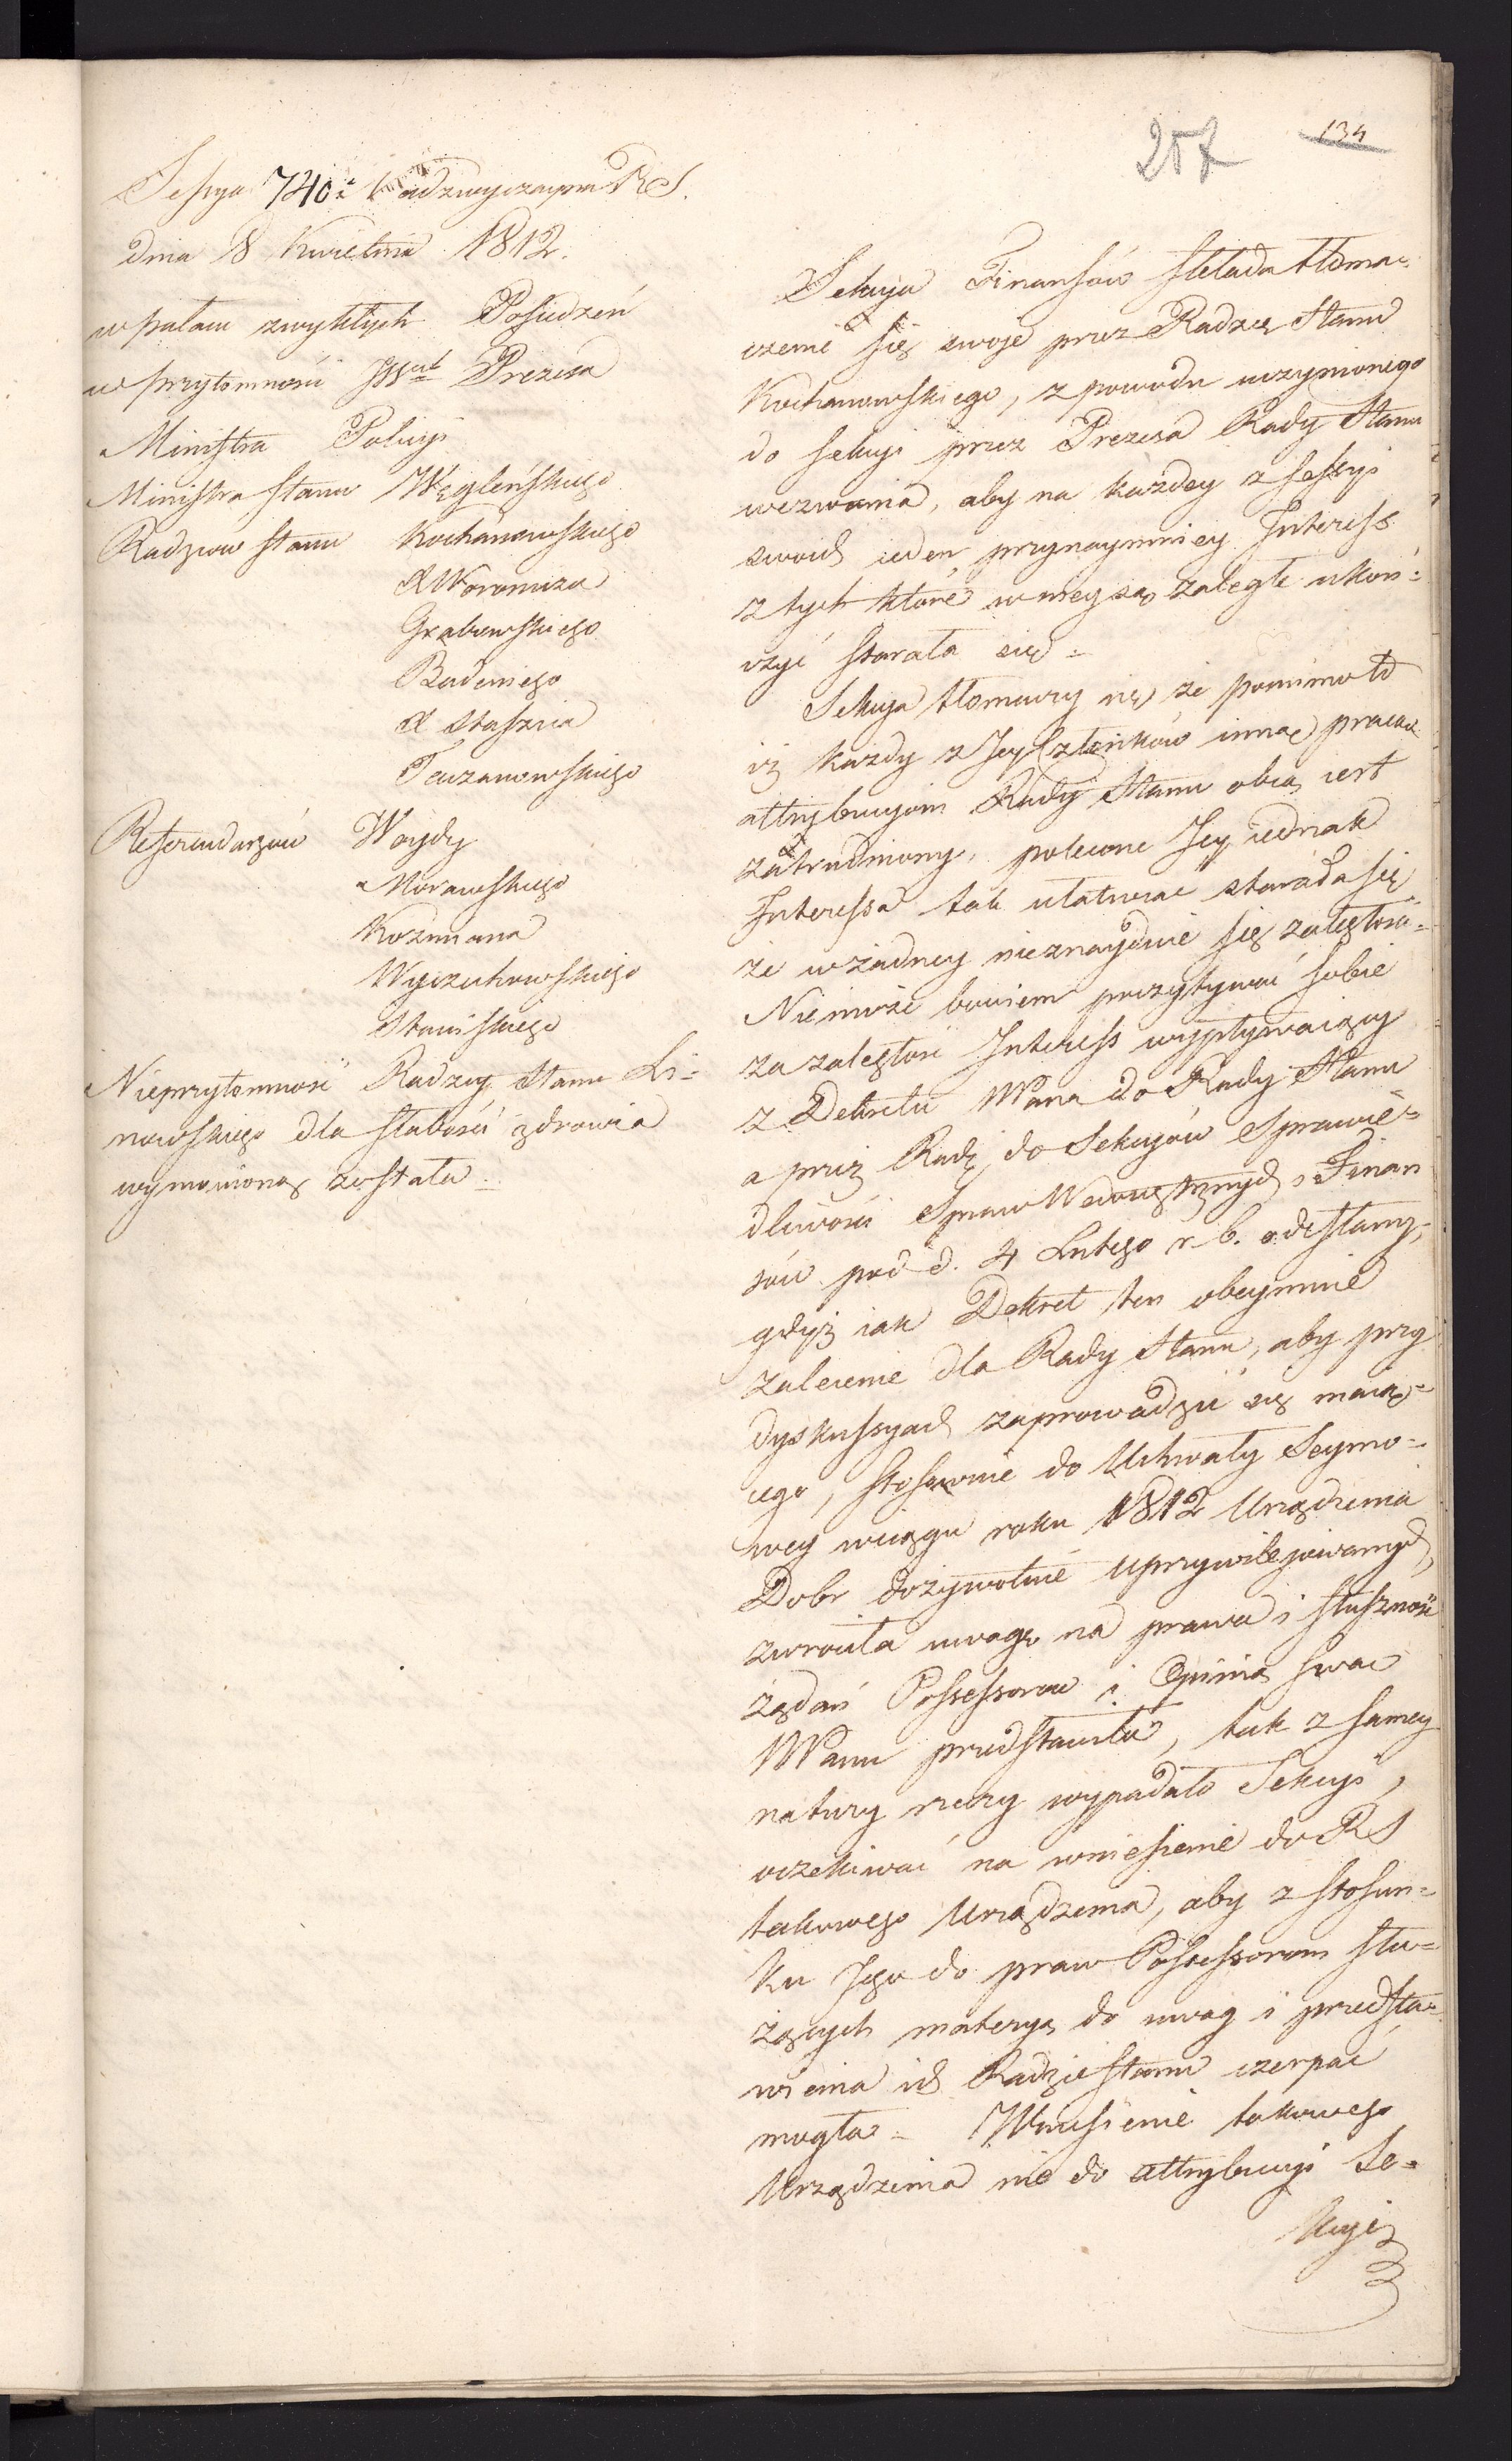 257
134
Sessya 740a Nadzwyczayna RS.
dnia 8 Kwietnia 1812.
w pałacu zwykłych Posiedzeń
w przytomności JW Prezesa
Ministra Policyi
Ministra Stanu Węgleńskiego
Radzców Stanu Kochanowskiego
X Woronicza
Grabowskiego
Badeniego
X Staszica
Tarzanowskiego
Referendarzów Woydy
Morawskiego
Kozmiana
Wyczechowskiego
Stawiskiego
Nieprzytomność Radzcy Stanu Li=
nowskiego dla słabości zdrowia
wymówioną została.
Sekcya Finansów składa tłoma=
czenie się swoje przez Radzcę Stanu
Kochanowskiego, z powodu uczynionego
do sekcyi przez Prezesa Rady Stanu
wezwania, aby na każdey z sessyi
swoich ieden przynaymniey Interess
z tych które w niey są zaległe ukoń=
czyć starała się=
Sekcya tłomaczy się, że pomimo to
iż każdy z Jey Członków inną pracą
attrybucyom Rady Stanu obcą iest
zatrudniony, polecone Jey iednak
Interessa tak ułatwiać starała się
że w żadney nieznayduie się zaległości=
Niemoże bowiem poczytywać sobie
za zaległość Interess wypływaiący
z Dekretu NPana do Rady Stanu
a przez Radę do Sekcyów Sprawie=
dliwości Spraw Wewnętrznych i Finan
sów pod d. 4 Lutego r. b. odesłany,
gdyż iak Dekret ten obeymuie
zalecenie dla Rady Stanu, aby przy
dyskussyach zaprowadzić się maią=
cego, stosownie do Uchwały Seymo=
wey w ciągu roku 1812 Urządzenia
Dobr dożywotnie uprzywilejowanych,
zwróciła uwagę na prawa i słuszność
żądań Possessorow i Opinią swoię
NPanu przedstawiła, tak z samey
natury rzeczy wypadało Sekcyi,
oczekiwać na wniesienie do RS
takowego Urządzenia, aby z stosun=
ku Jego do praw Possessorom słu=
żących materyą do uwag i przedsta=
wienia ich Radzie Stanu czerpać
mogła= Wniesienie takowego
Urządzenia nie do attrybucyi Se=
kcyi